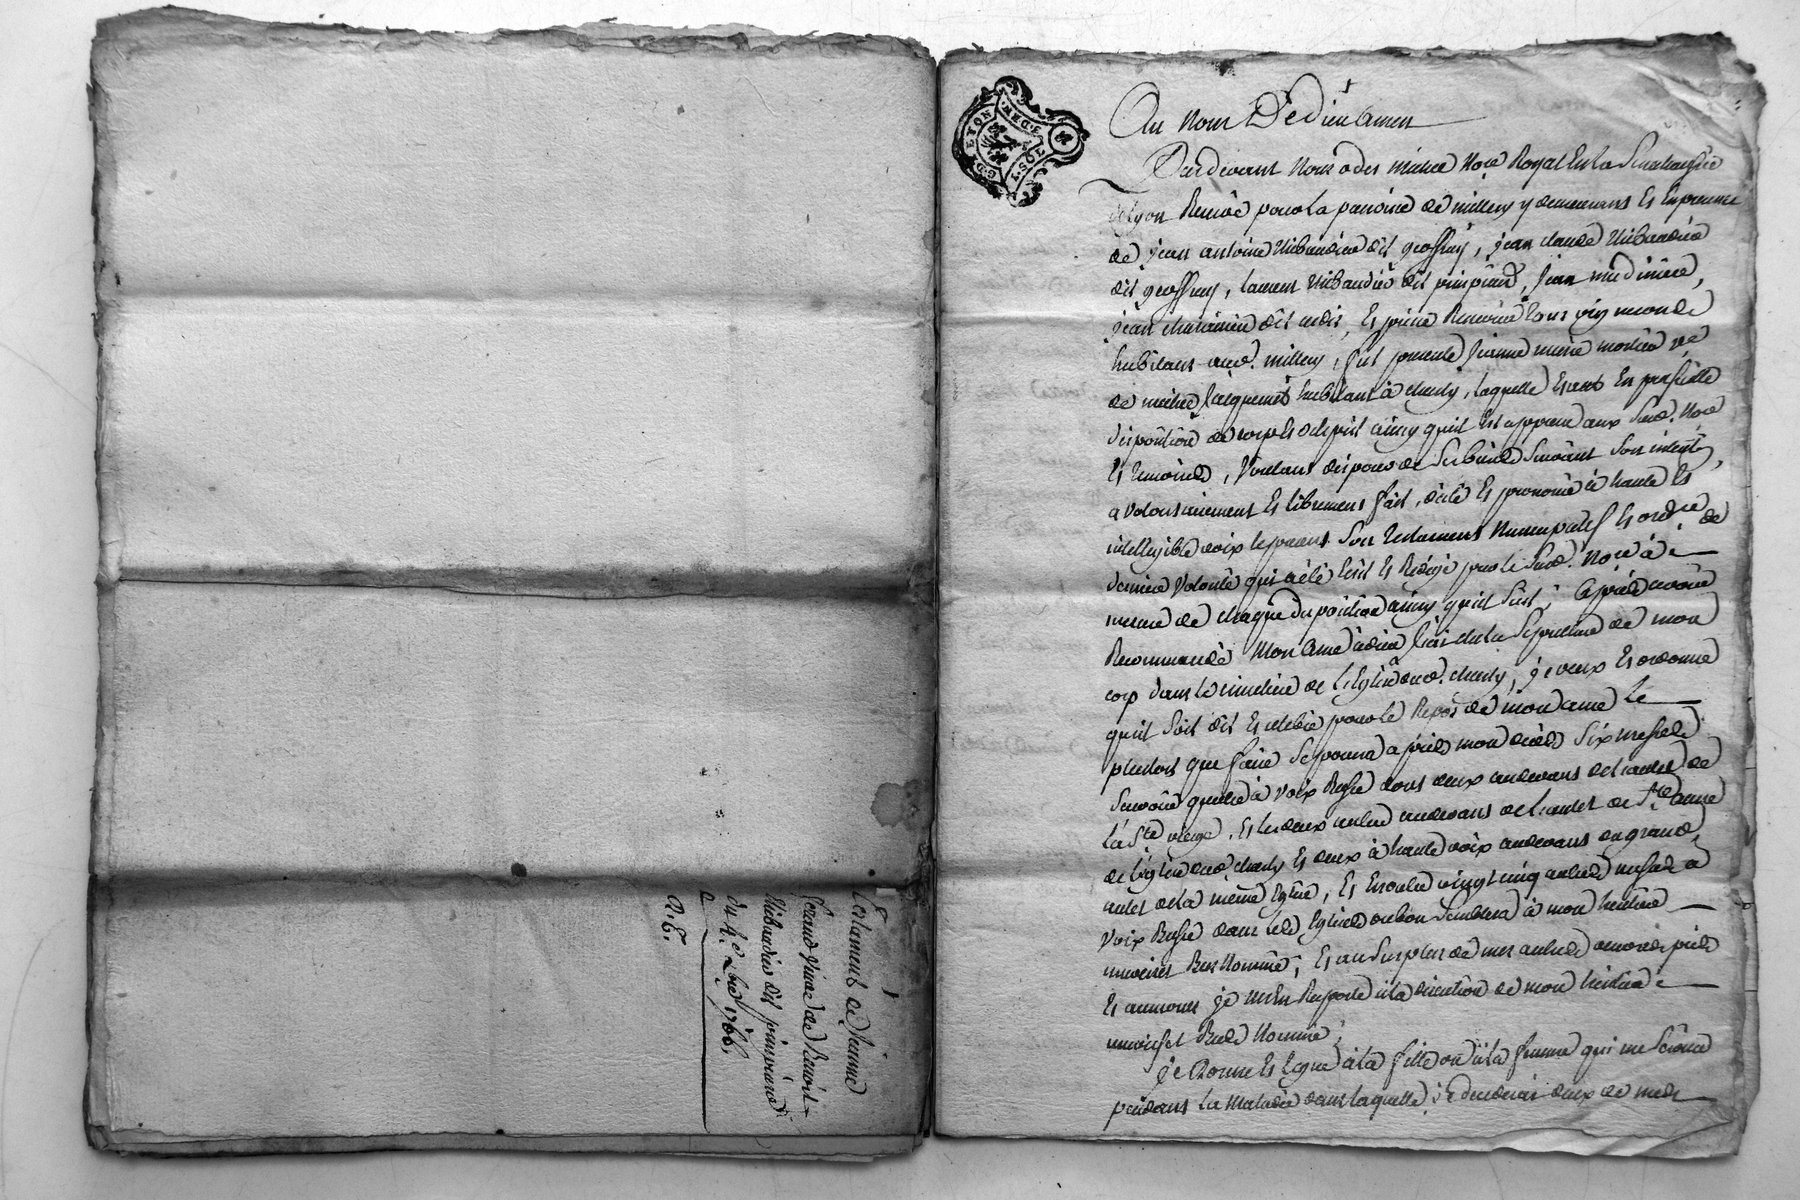 Testament de Jeanne
Gerand veuve de Benoist
Thibaudier dit
du 4.e 1766.
R. C.
G.D.E LYON
I.SOL
Au Nom De dieu Amen
Pardevant Nous Nore Royal En la Senechaussée
de Lyon Reservé pour la paroisse de millery y demeurant Et En presence
de jean antoine thibaudier dit geoffray, jean claude thibaudier
dit geoffray, laurent thibaudier dit, jean
jean dit, Et pierre tous vignerons
habitans aud. millery, fut presente Jeanne marie ve
de habitant à charly, laquelle Etant En parfaitte
disposition de corps Et desprit ainsy quil Est apparu aux Sud. Nore
Et temoins, Voulant disposer de Ses biens Suivant Son intention,
a volontairement Et librement fait, dicté Et prononcé à haute Et
intelligible voix le present Son testament Nuncupatif Et ordre de
derniere Volonté qui a été Ecrit Et Redigé par le Sud. Nore à
mesure de chaque disposition ainsy quil Suit; Après avoir
Recommandé Mon Ame à dieu la Sepulture de mon
corp dans le cimetiere de l'Eglise dud. charly, je veux Et ordonne
quil Soit dit Et celebré pour le Repos de mon ame le
plustost que faire Se pourra après mon decès Six messes
Savoir quatre à voix Basse dont deux audevant de l'autel de
la Ste vierge, Et les deux autres audevant de l'autel de Ste anne
de l'Eglise dud. charly Et deux à haute voix audevant du grand
autel de la même Eglise, Et Ensuite vingt cinq autres messes à
voix Basse dans telle Eglise ou bon Semblera à mon heritier
universel Bas Nommé; Et au Surplus de mes autres œuvres pies
Et aumones je m'En Rapporte à la discretion de mon heritier
universel Bas Nommé;
je Donne Et Legue à la fille ou à la femme qui me Servira
pendant la Maladie dans laquelle je decederai deux de mes